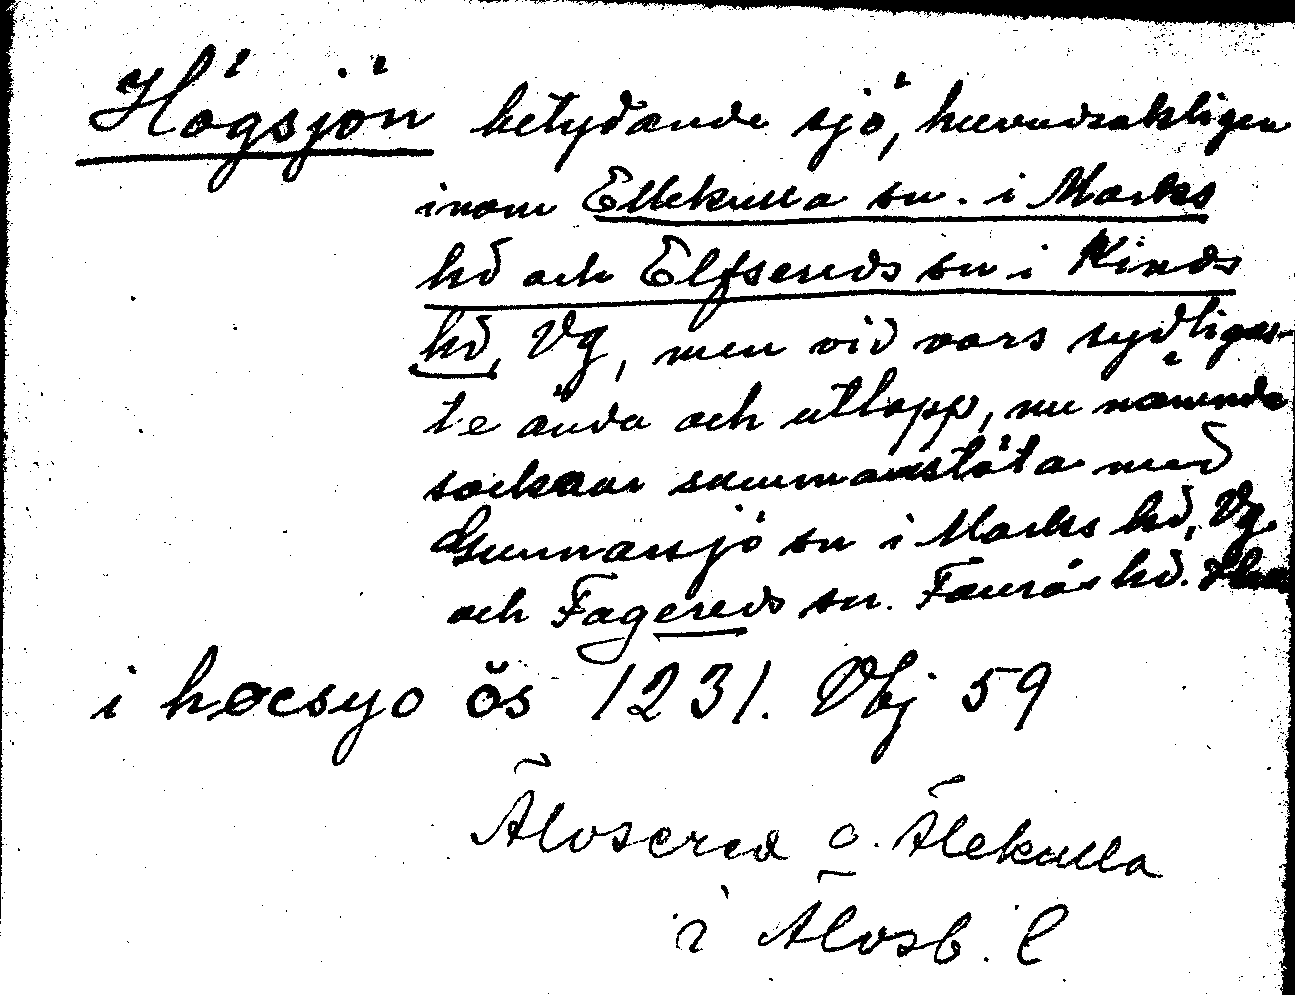 Högsjön betydande sjö, huvudsakligen
inom Ellekulla sn. i Marks
hd och Elfsereds sn i Kinds
hd, Vg, men vid vars sydligas-
te ända och utlopp, nu nämnda
socknar sammanstöta med
Gunnarsjö sn i Marks hd, Vg.
och Fagereds sn. Faurås hd.
i høcsyo ǒs 1231. Vbj 59
Älvsered o. Älekulla
i Älvsb. l